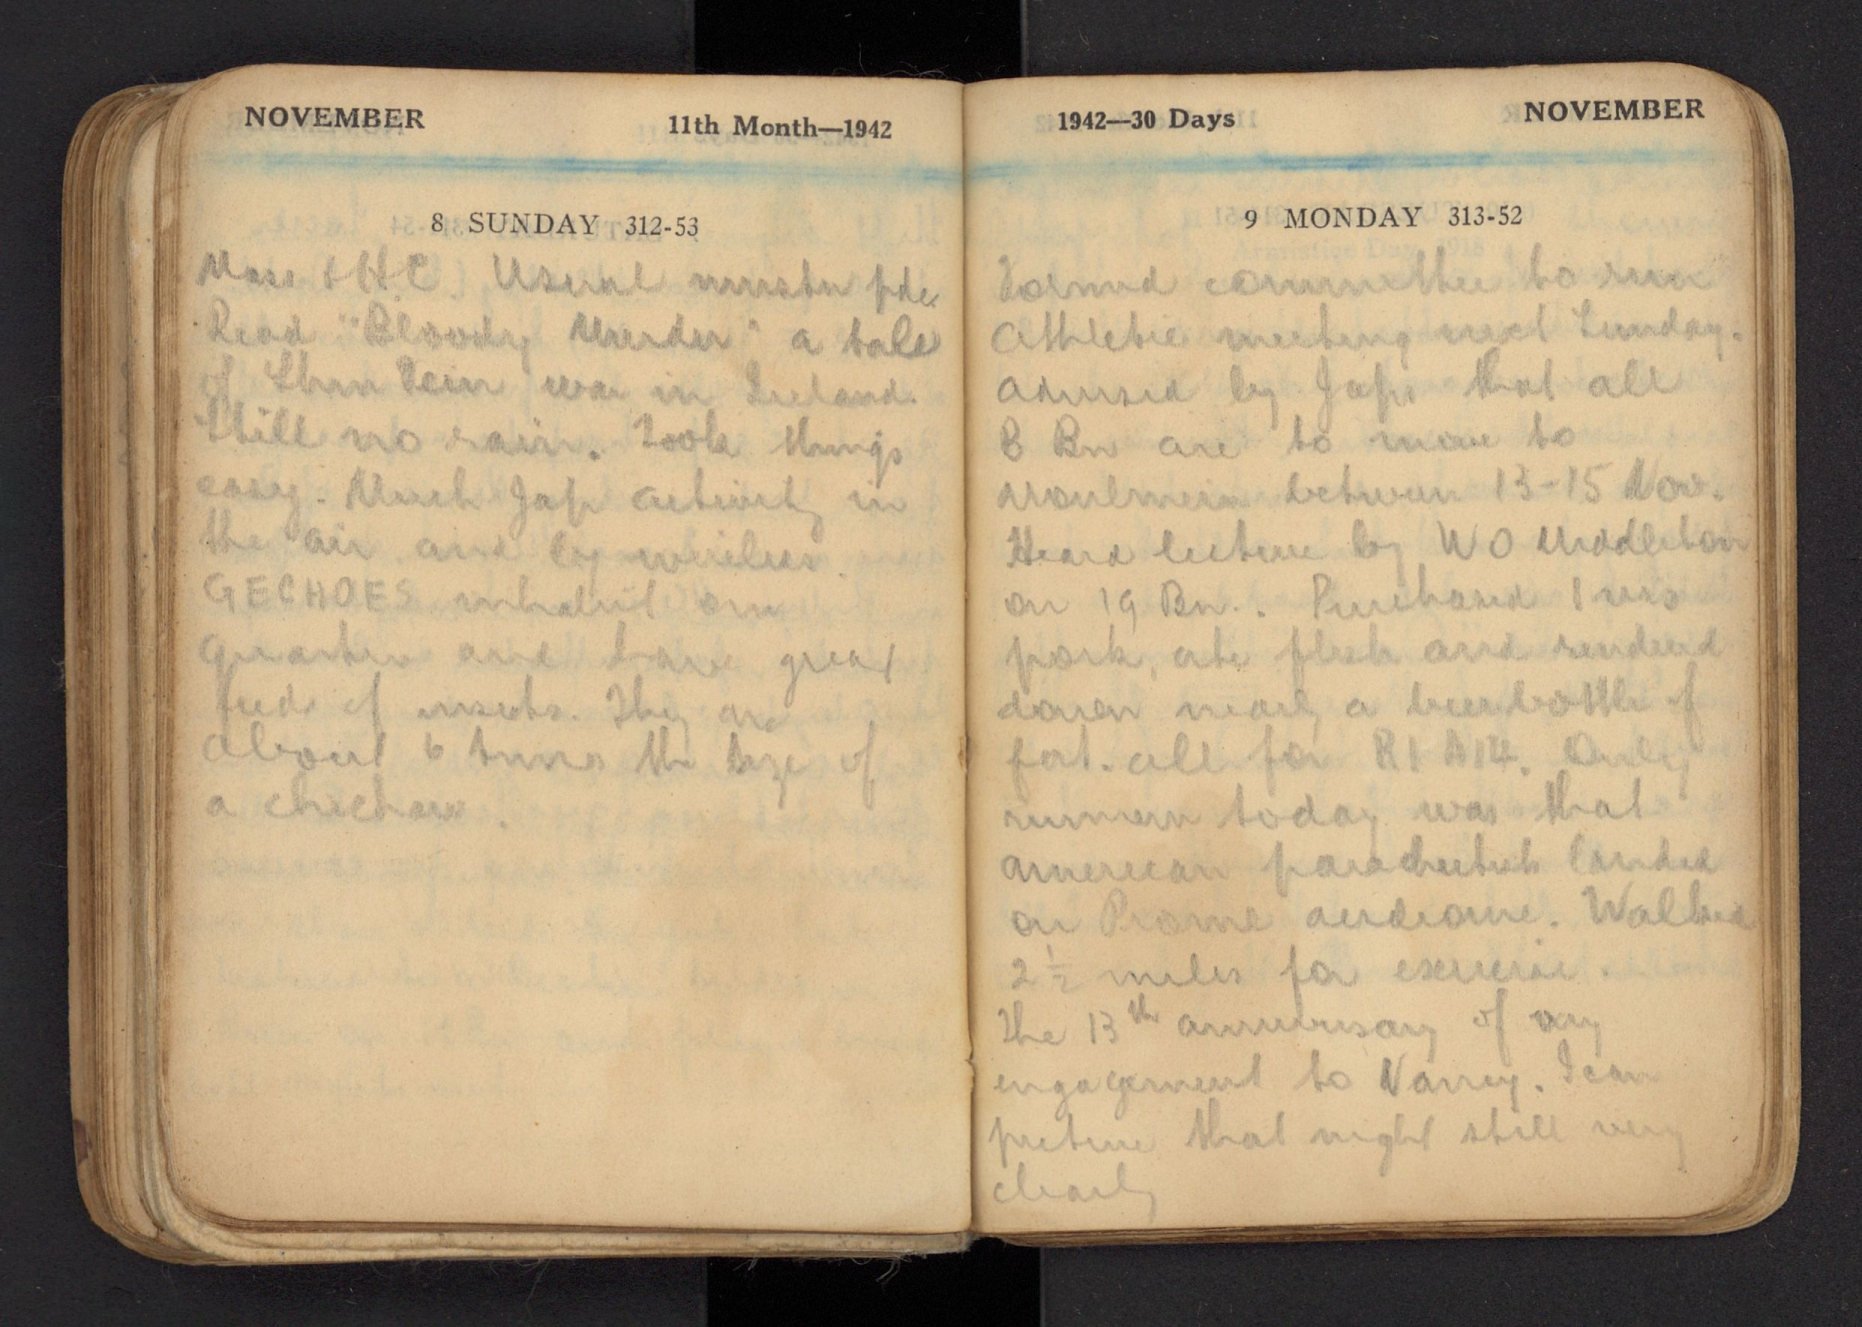 NOVEMBER
11th Month—1942
8 SUNDAY 312-53
Mass & HC. Usual muster pde.
Read "Bloody Murder" a tale
of Shin Fein war in Ireland.
Still no rain. Took things
easy. Much Jap activity in
the air and by wireless.
GECHOES inhabit our
quarters and have great
feeds of insects. They are
about 6 times the size of
a chichaw.
1942—30 Days
NOVEMBER
9 MONDAY 313-52
Formed committee to run
Athletic meeting next Sunday.
Advised by Japs that all
B Bn are to move to
Moulmein between 13-15 Nov.
Heard lecture by WO Middleton
on 19 Bn. Purchased 1 viss
pork, ate flesh and rendered
down nearly a beerbottle of
fat. all for R1 A14. Only
rumour today was that
American parachutists landed
on Prome aerdrome. Walked
2½ miles for exercise.
The 13th anniversary of my
engagement to Nancy. I can
picture that night still very
clearly